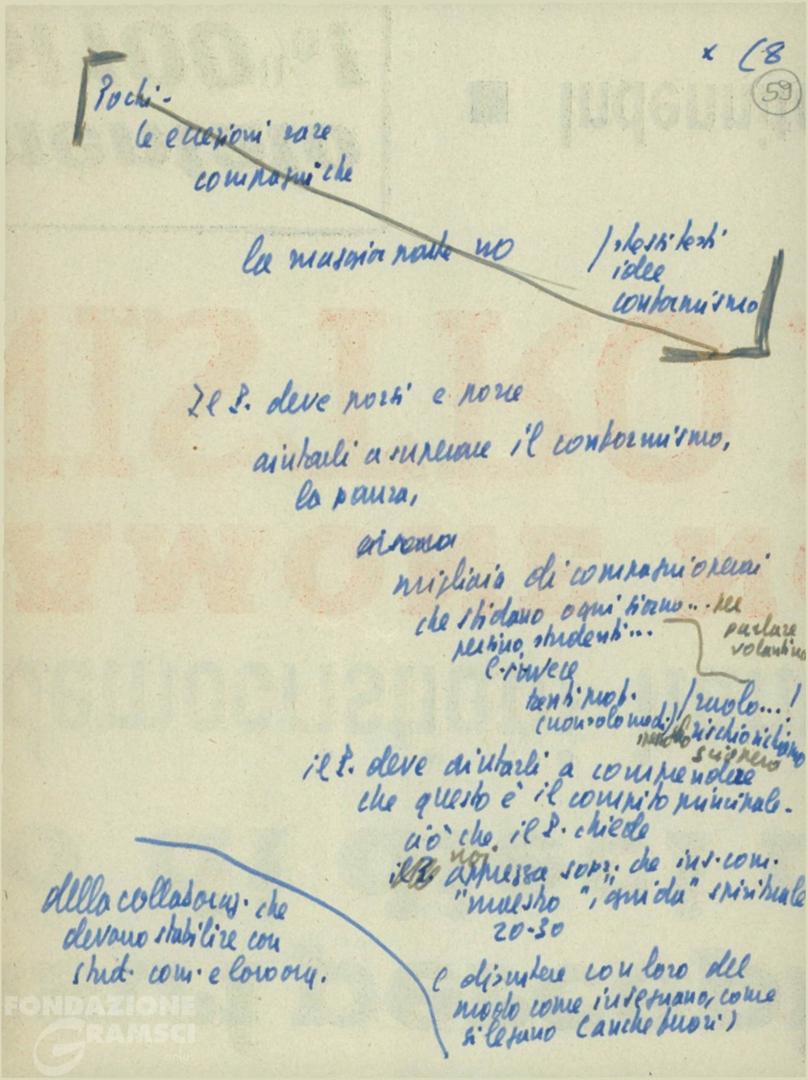 x (8
59
Pochi -
le eccezioni rare
compagni che
la maggior parte no
/ stessi testi
idee
conformismo
Il P. deve porsi e porre
aiutarli a superare il conformismo,
la paura,
migliaia di compagni operai
che sfidano ogni giorno... per
parlare
volantino
persino studenti...
E invece
tanti prof.
(non solo medi)
/ ruolo...!
rischio richiamo
sciopero
il P. deve aiutarli a comprendere
che questo è il compito principale -
ciò che il P. chiede
noi
apprezza sopr. che ins. com.
"maestro", "guida" spirituale
20-30
della collaboraz. che
devono stabilire con
stud. com. e loro org.
e discutere con loro del
modo come insegnano, come
si legano (anche fuori)
FONDAZIONE
GRAMSCI